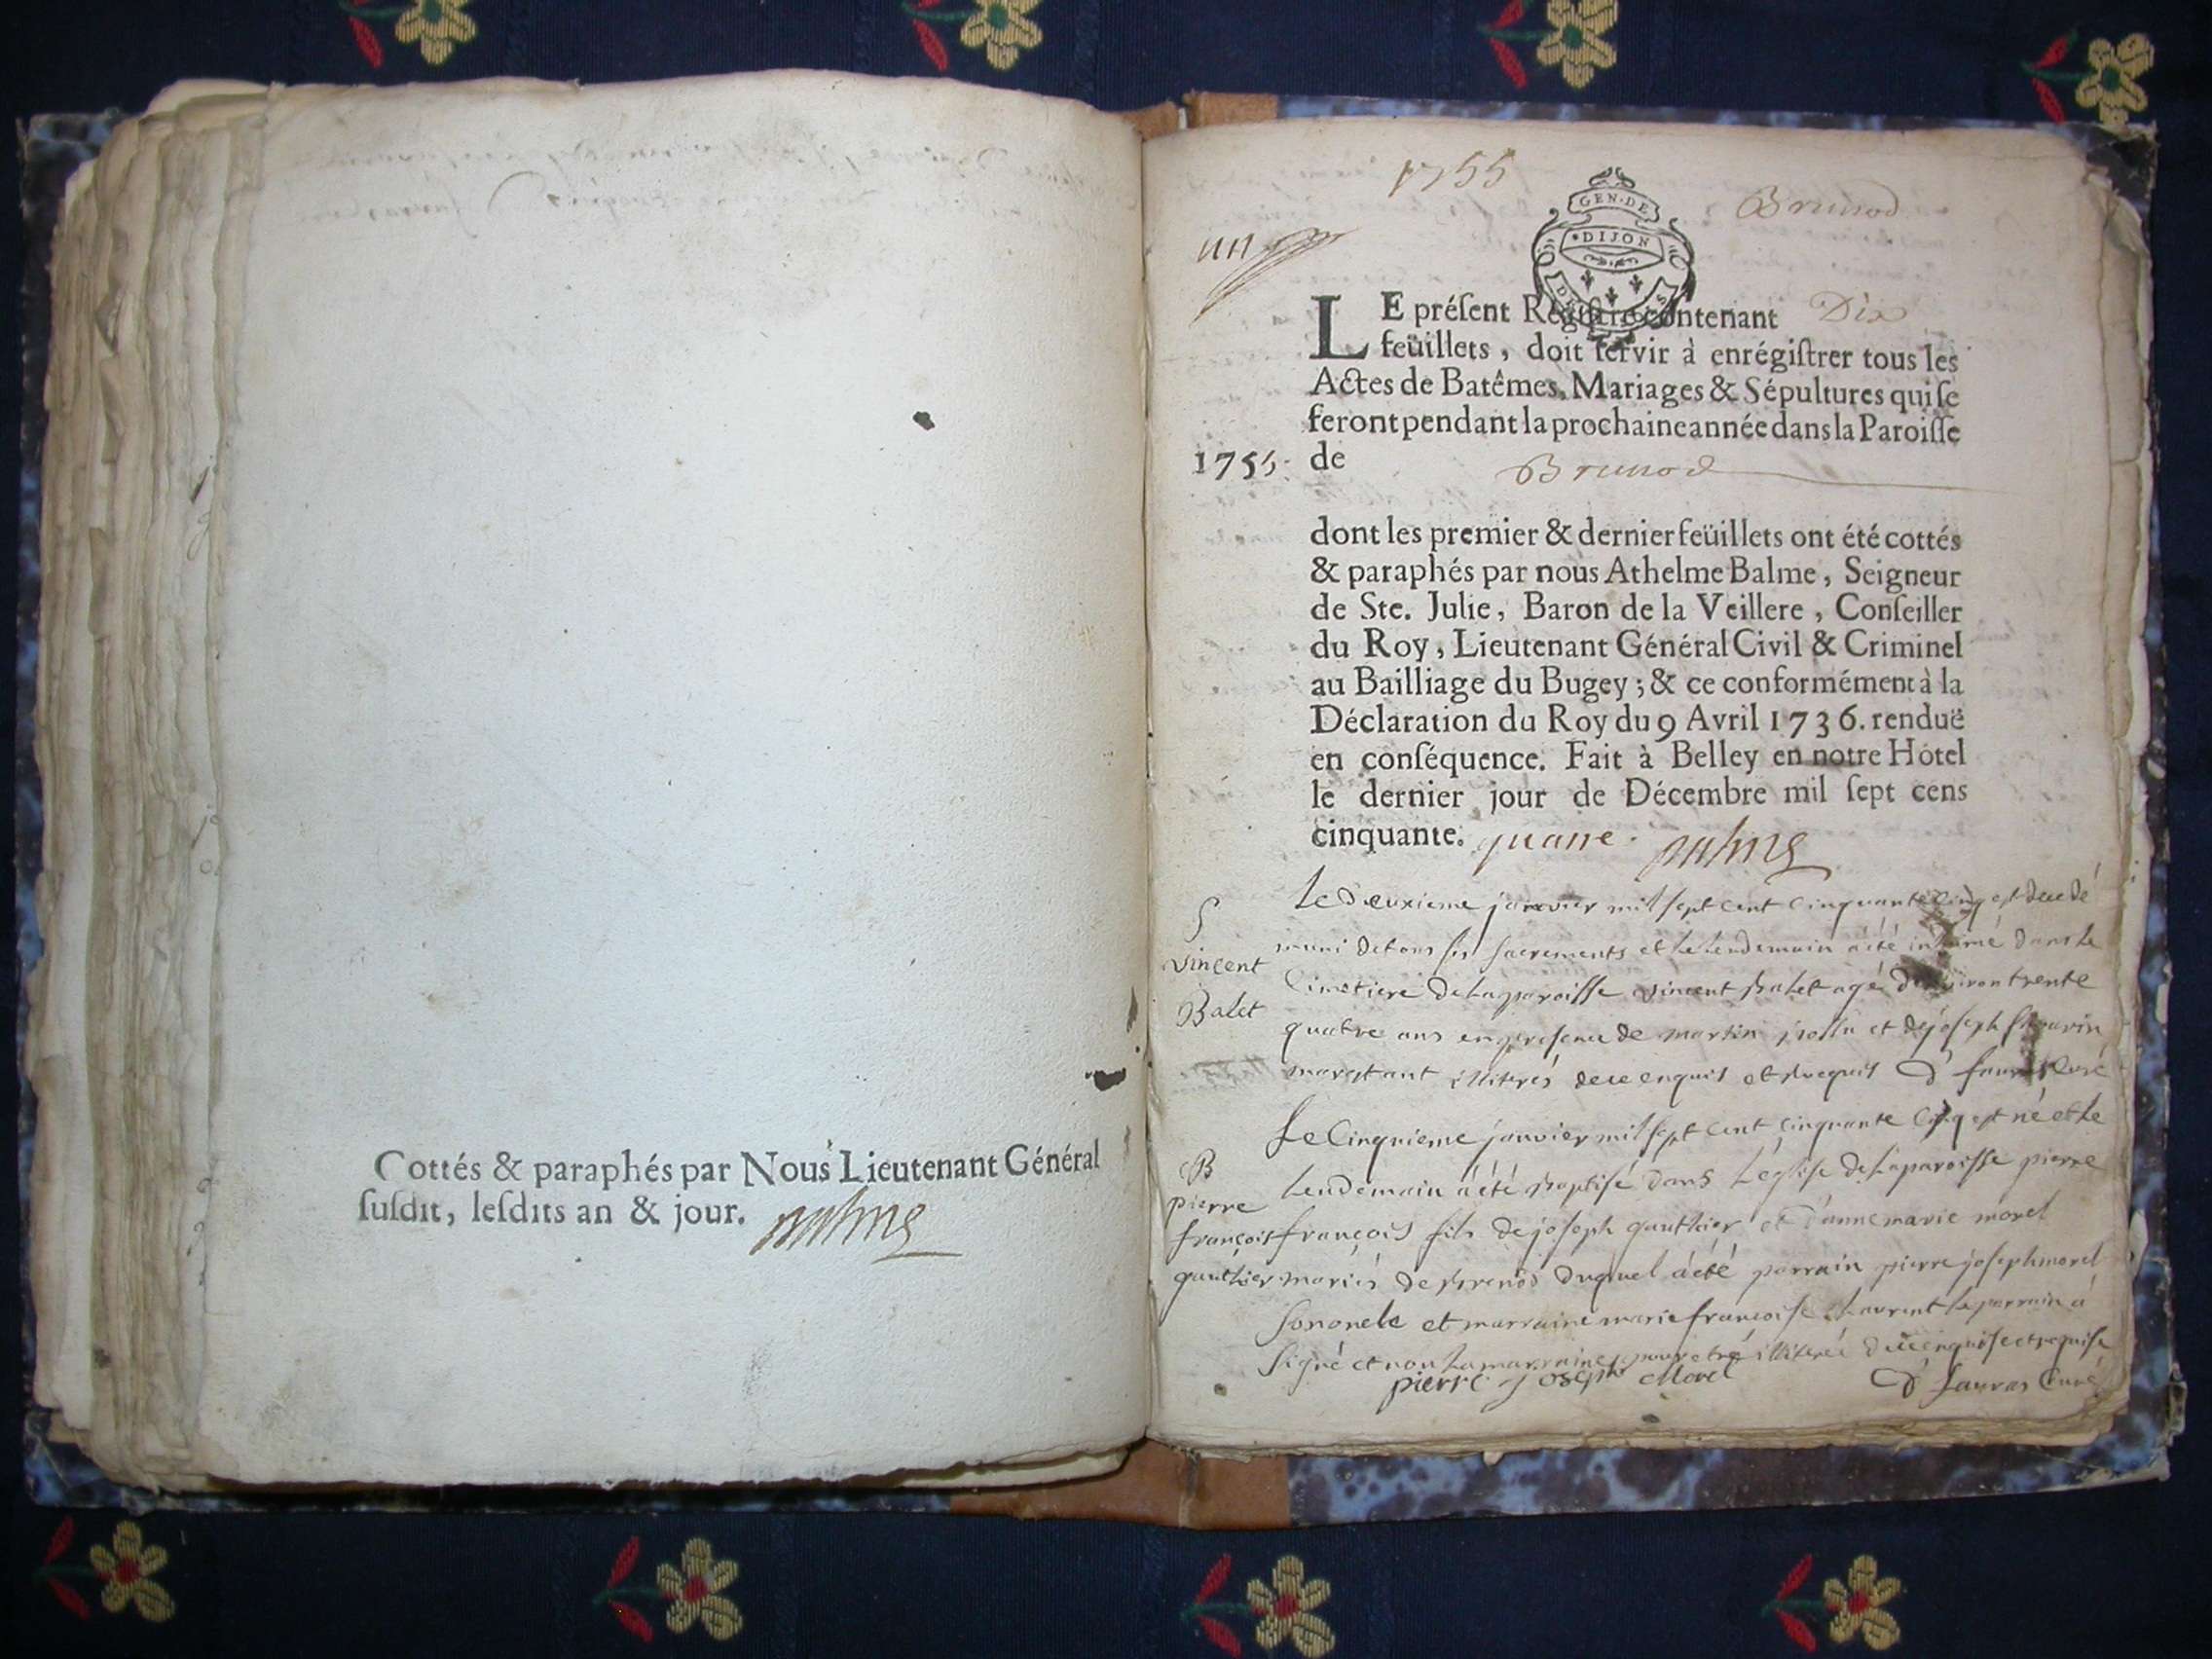 Cottés & paraphés par Nous Lieutenant Général
suſdit, leſdits an & jour. Balme
1755
Brunod
un
GEN·DE
DIJON
LE préſent Régiſtre contenant Dix
feüillets, doit ſervir à enrégiſtrer tous les
Actes de Batêmes, Mariages & Sépultures qui ſe
feront pendant la prochaine année dans la Paroiſſe
1755. de Brunod
dont les premier & dernier feüillets ont été cottés
& paraphés par nous Athelme Balme, Seigneur
de Ste. Julie, Baron de la Veillere, Conſeiller
du Roy, Lieutenant Général Civil & Criminel
au Bailliage du Bugey; & ce conformément à la
Déclaration du Roy du 9 Avril 1736. renduë
en conſéquence. Fait à Belley en notre Hôtel
le dernier jour de Décembre mil ſept cens
cinquante. quatre. Balme
S
vincent
Balet
Le deuxieme janvier mil sept cent cinquante cinq est decedé
muni de tous ses sacrements et le lendemain a été inhumé dans le
cimetiere de la paroisse vincent balet agé d'environ trente
quatre ans en presence de martin et de joseph
illiterés de ce enquis et requis D favras Curé
B
pierre
françois
gauthier
Le Cinquieme janvier mil sept cent cinquante cinq est né et le
lendemain a été baptisé dans l'église de la paroisse pierre
françois fils de joseph gauthier et d'anne marie morel
mariés de brenod duquel a été parrain pierre joseph morel
son oncle et marraine marie françoise Laurent le parrain a
signé et non la marraine pour etre illiterée de ce enquise et requise
pierre joseph Morel D favras Curé